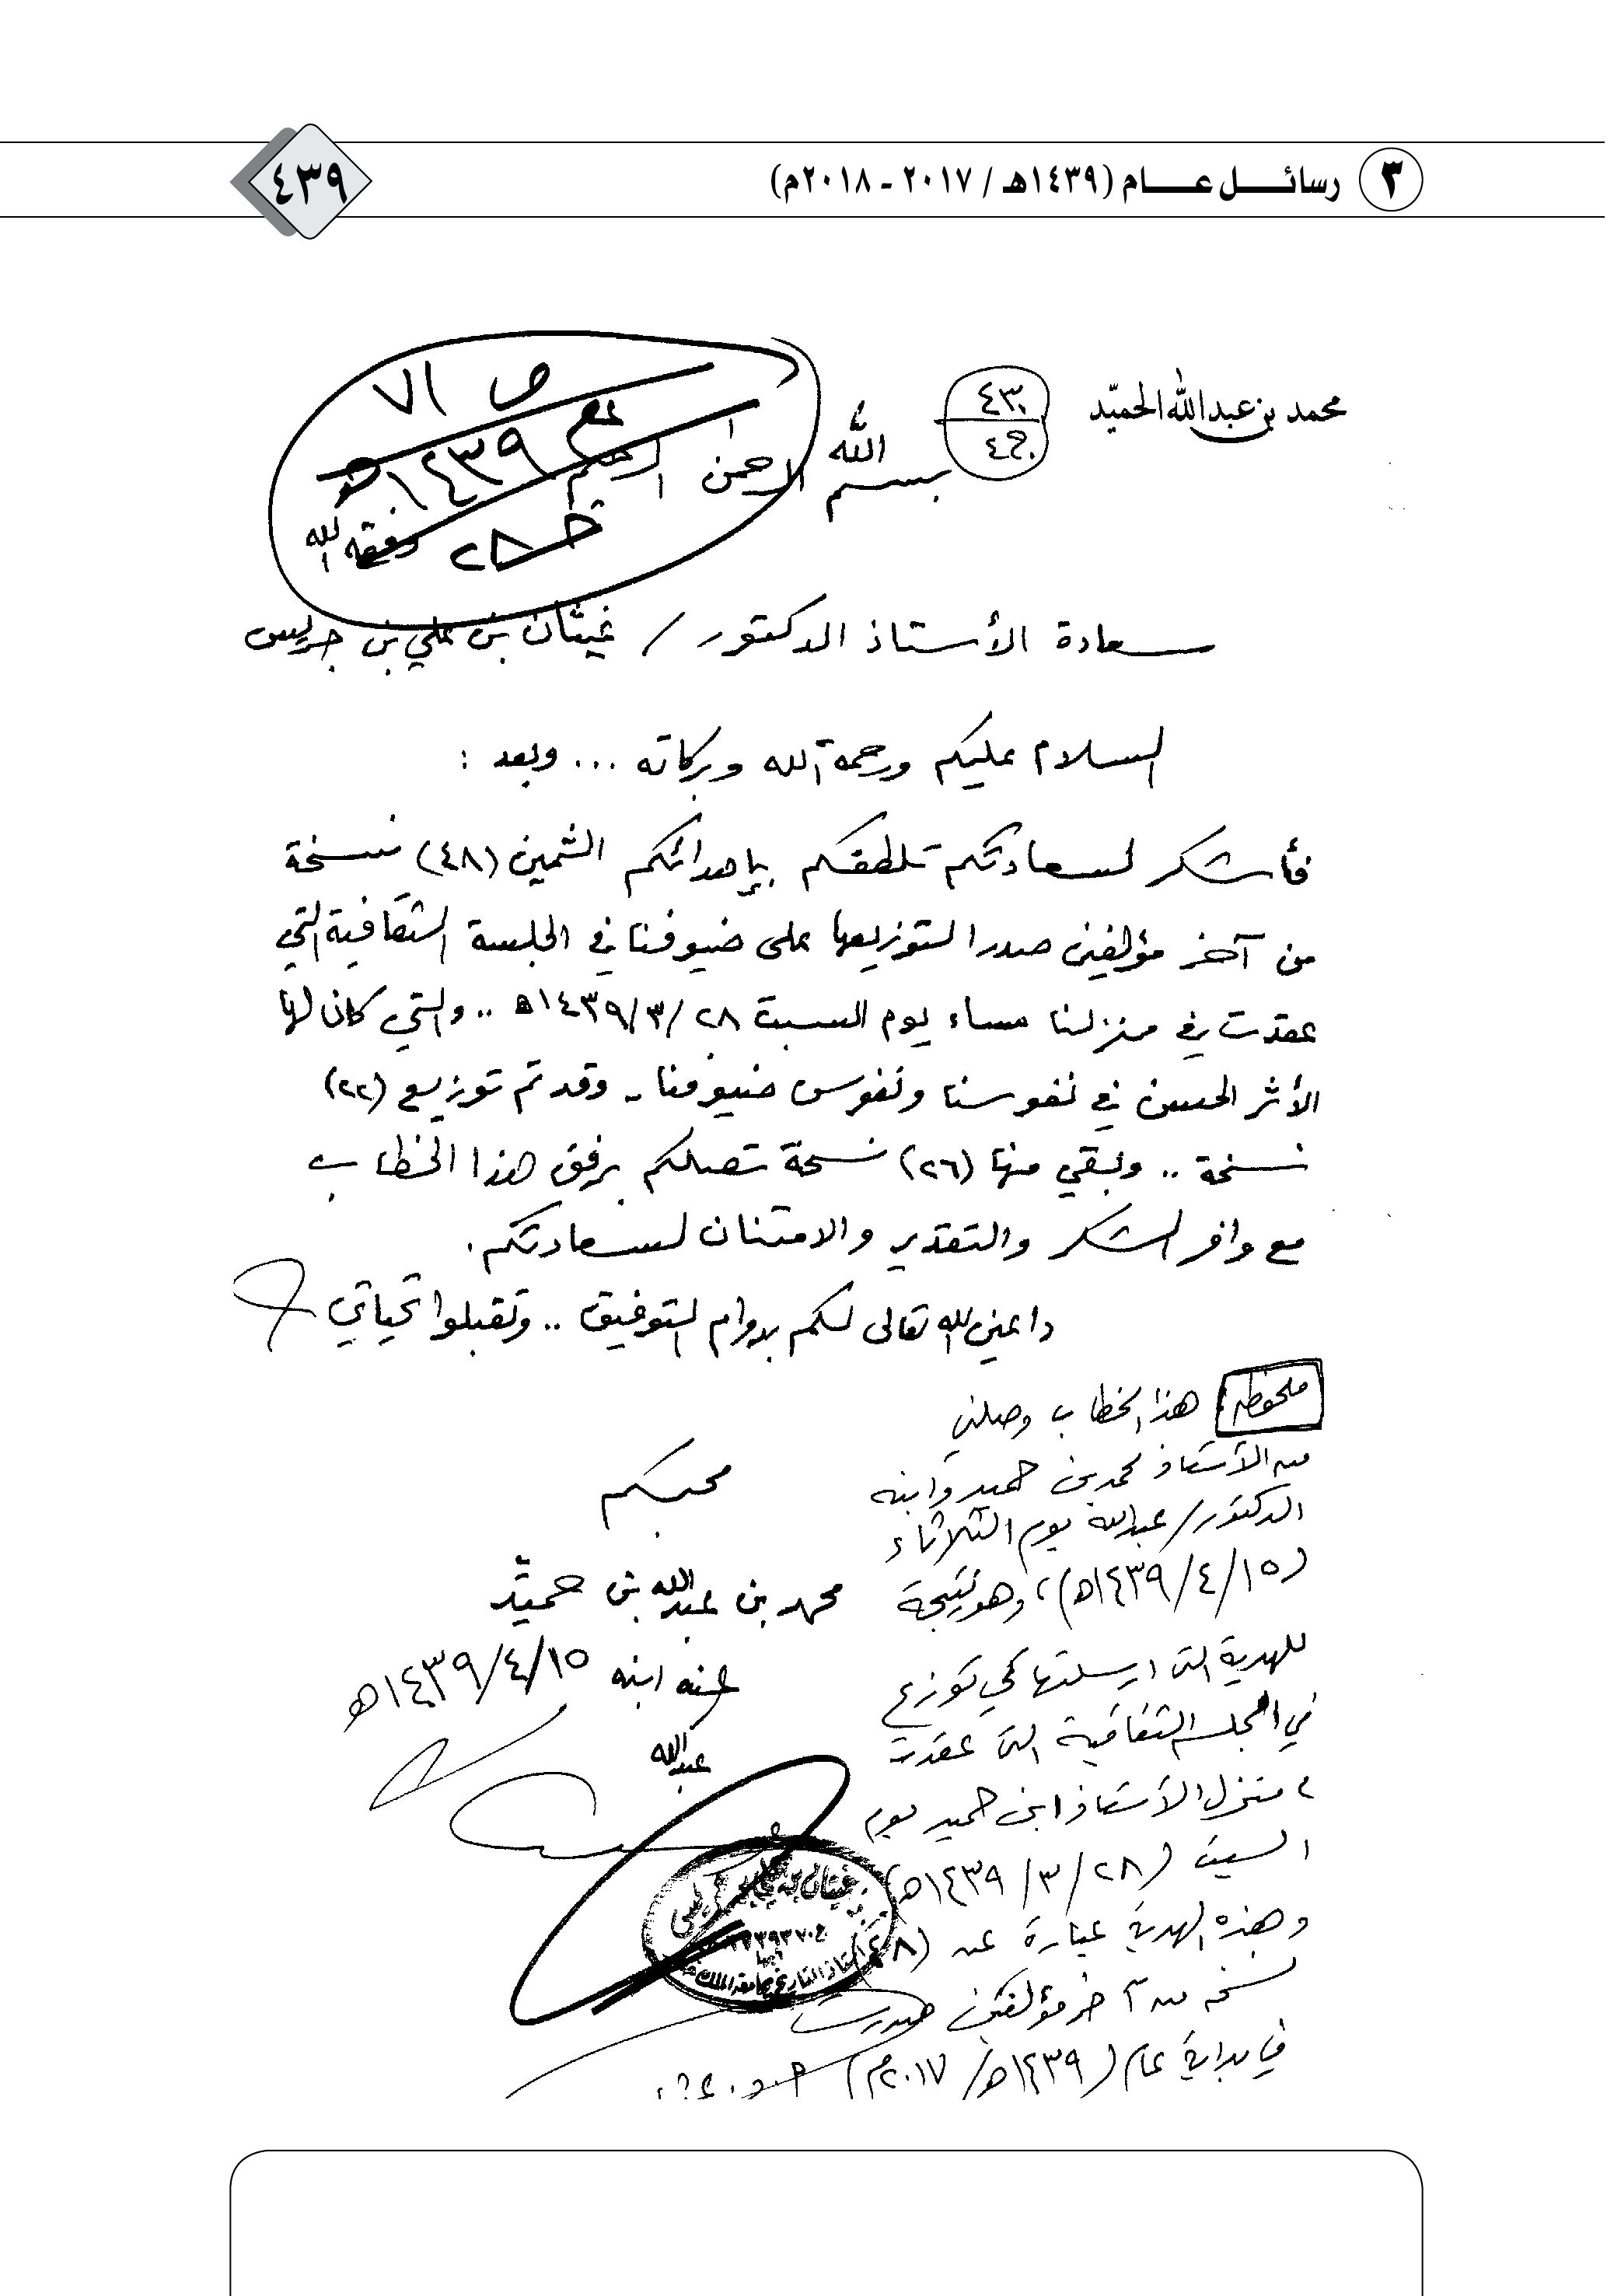 ٣ رسائــل عــام (١٤٣٩هـ / ٢٠١٧ - ٢٠١٨م)
٤٣٩
محمد بن عبدالله الحميّد
٤٣٠
ص ٧١
١٤٣٩هـ
٢٨
وفقه الله
بسم الله الرحمن الرحيم
سعادة الأستاذ الدكتور / غيثان بن علي بن جريس
السلام عليكم ورحمة الله وبركاته ... وبعد :
فأشكر لسعادتكم تلطفكم بإهدائكم الثمين (٤٨) نسخة
من آخر مؤلفين صدرا لتوزيعها على ضيوفنا في الجلسة الثقافية التي
عقدت في منزلنا مساء يوم السبت ٢٨/٣/١٤٣٩هـ .. والتي كان لها
الأثر الحسن في نفوسنا ونفوس ضيوفنا - وقد تم توزيع (٢٢)
نسخة .. وبقي منها (٢٦) نسخة تصلكم برفق هذا الخطاب
مع وافر الشكر والتقدير والامتنان لسعادتكم.
داعين الله تعالى لكم بدوام التوفيق .. وتقبلوا تحياتي
ملحوظه هذا الخطاب وصلني
من الأستاذ محمد بن حميد وابنه
الدكتور/عبدالله يوم الثلاثاء
(١٥/٤/١٤٣٩هـ)، وهو نتيجة
للهدية التي ارسلتها كي توزع
في الجلسة الثقافية التي عقدت
منزل الأستاذ ابن حميد يوم
السبت (٢٨/٣/١٤٣٩هـ)
وهذه الهدية عبارة عن (٤٨)
نسخه من آخر مؤلفين صدرت
في بداية عام (١٤٣٩هـ/٢٠١٧م)
محبكم
محمد بن عبدالله بن حميّد
عنه ابنه ١٥/٤/١٤٣٩هـ
عبدالله